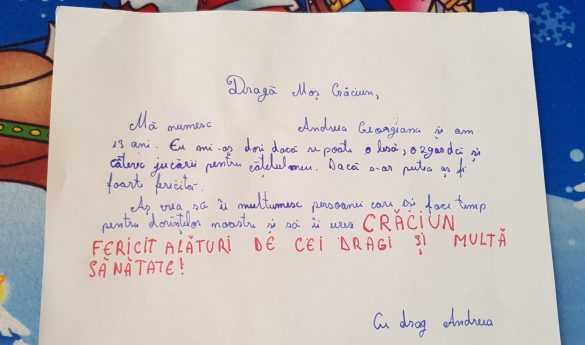 Dragă Moș Crăciun,
Mă numesc Andreea Georgiana și am
13 ani. Eu mi-aș dori dacă se poate o lesă, o zgardă și
câteva jucării pentru cățelul meu. Dacă s-ar putea aș fi
foarte fericită.
Aș vrea să îi mulțumesc persoanei care își faci timp
pentru dorințelor noastre și să îi urez CRĂCIUN
FERICIT ALĂTURI DE CEI DRAGI ȘI MULTĂ
SĂNĂTATE!
Cu drag Andreea